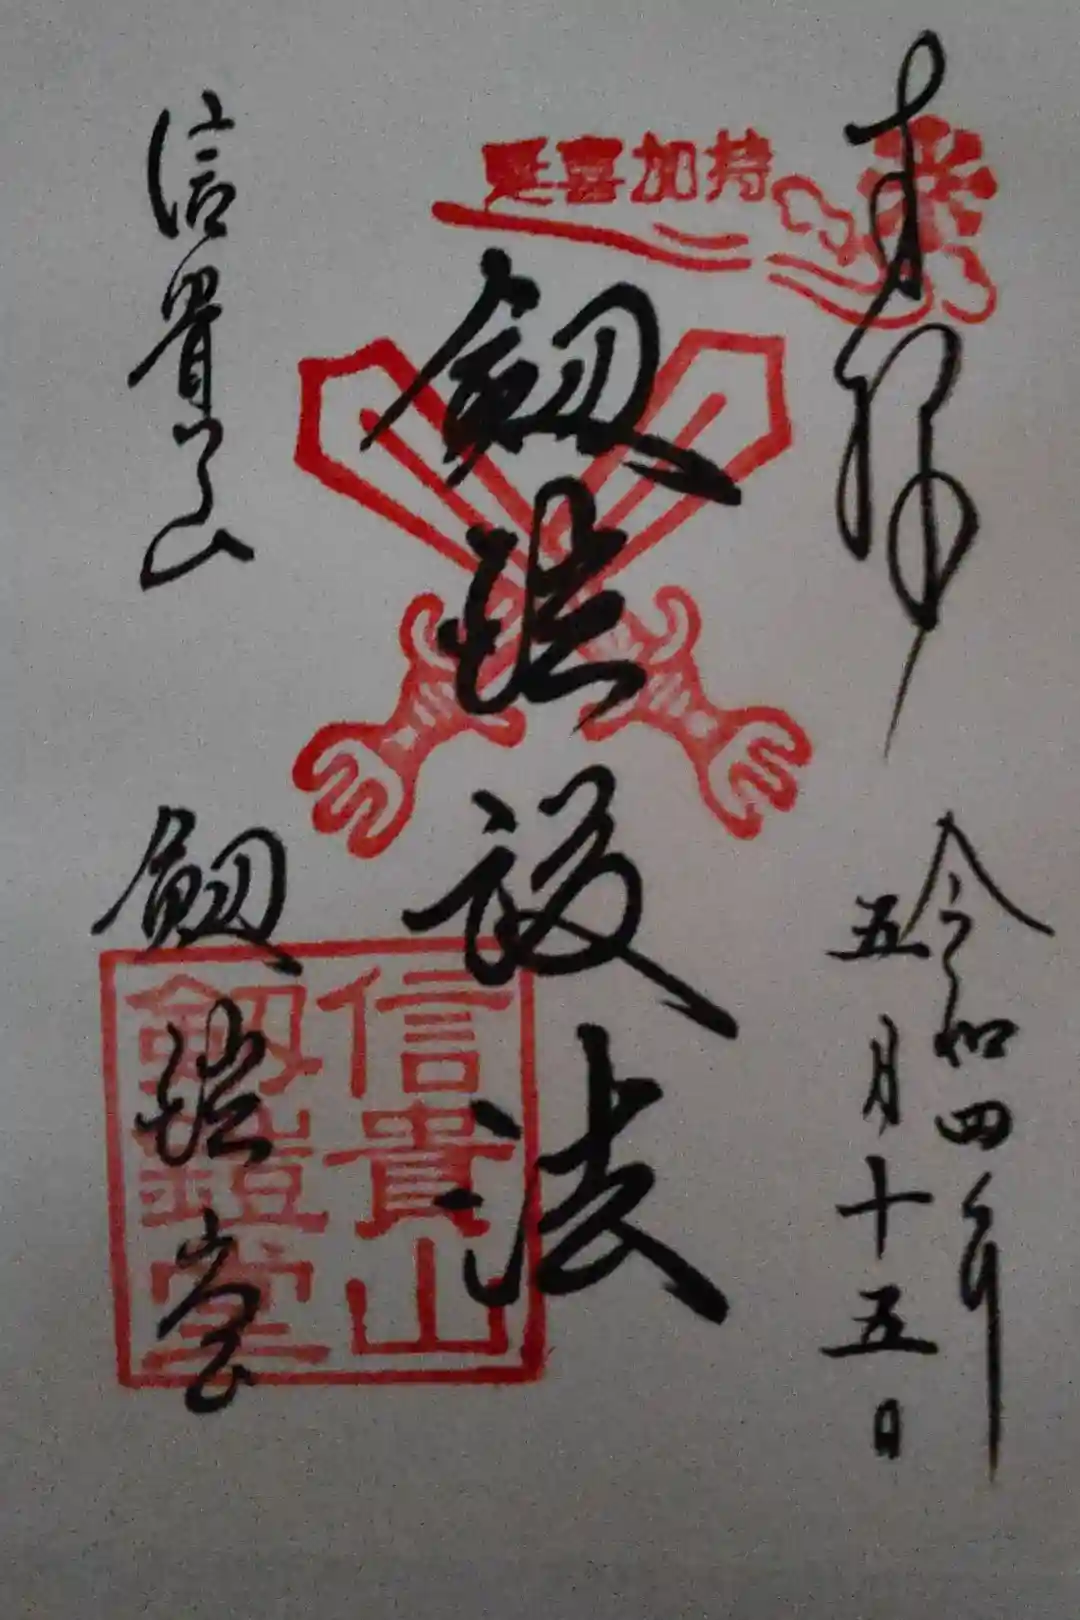 奉拝
令和四年
五月十五日
延喜加持
剱鎧護法
信貴山
剱鎧堂
信貴山
剱鎧堂